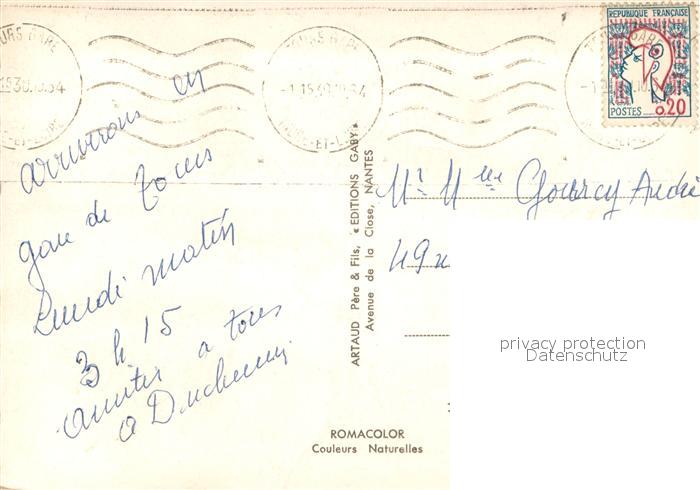 TOURS GARE
-1 15 30.10.64
INDRE-ET-LOIRE
REPUBLIQUE FRANÇAISE
POSTES 0.20
arriverons en
gare de tours
Lundi matin
3 h 15
amitiés a tous
ARTAUD Père & Fils, « EDITIONS GABY »
Avenue de la Close, NANTES
Mr Mme Gourcy André
49
privacy protection
Datenschutz
ROMACOLOR
Couleurs Naturelles